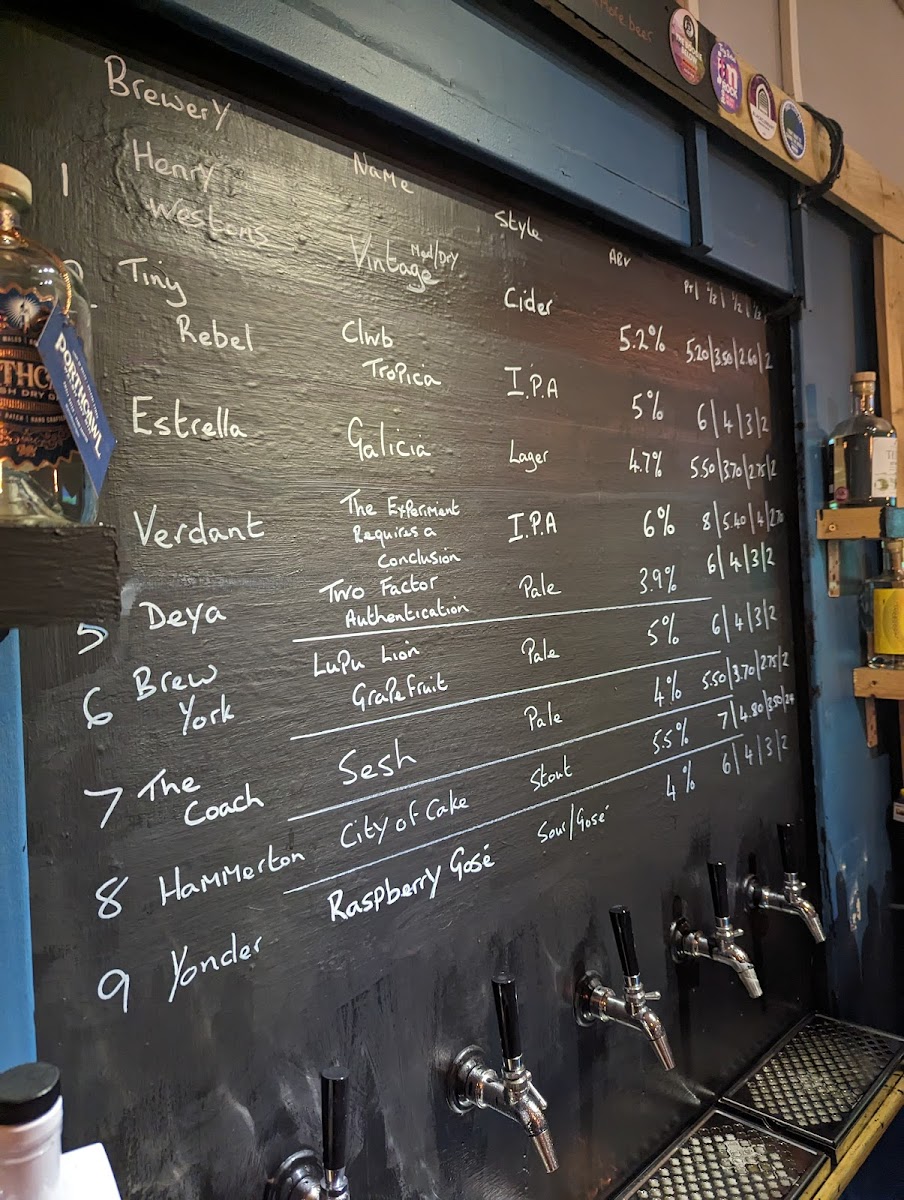 Brewery Name Style ABV Pt | 2/3 | 1/2 | 1/3
1 Henry Westons Vintage Med/Dry Cider 5.2% 5.20|3.50|2.60|2
Tiny Rebel Clwb Tropica I.P.A 5% 6|4|3|2
Estrella Galicia Lager 4.7% 5.50|3.70|2.75|2
Verdant The Experiment Requires a Conclusion I.P.A 6% 8|5.40|4|2.70
5 Deya Two Factor Authentication Pale 3.9% 6|4|3|2
6 Brew York Lupu Lion Grapefruit Pale 5% 6|4|3|2
7 The Coach Sesh Pale 4% 5.50|3.70|2.75|2
8 Hammerton City of Cake Stout 5.5% 7|4.80|3.50|2.4
9 Yonder Raspberry Gosé Sour/Gosé 4% 6|4|3|2
PORTHCAWL
THC
DRY